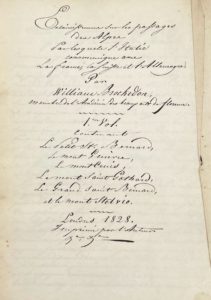 sur les passages
des Alpes
Par lesquels l'Italie
communique avec
La France, la Suisse et l'Allemagne
Par
William Brockedon
membre de l'Académie des beaux arts de
1er Vol.
Contenant
Le Petit St. Bernard,
le mont Genèvre,
le mont Cenis,
Le mont Saint Gothard,
Le Grand Saint Bernard,
et le mont Stelvio.
Londres 1828.
Imprimé par l'Auteur